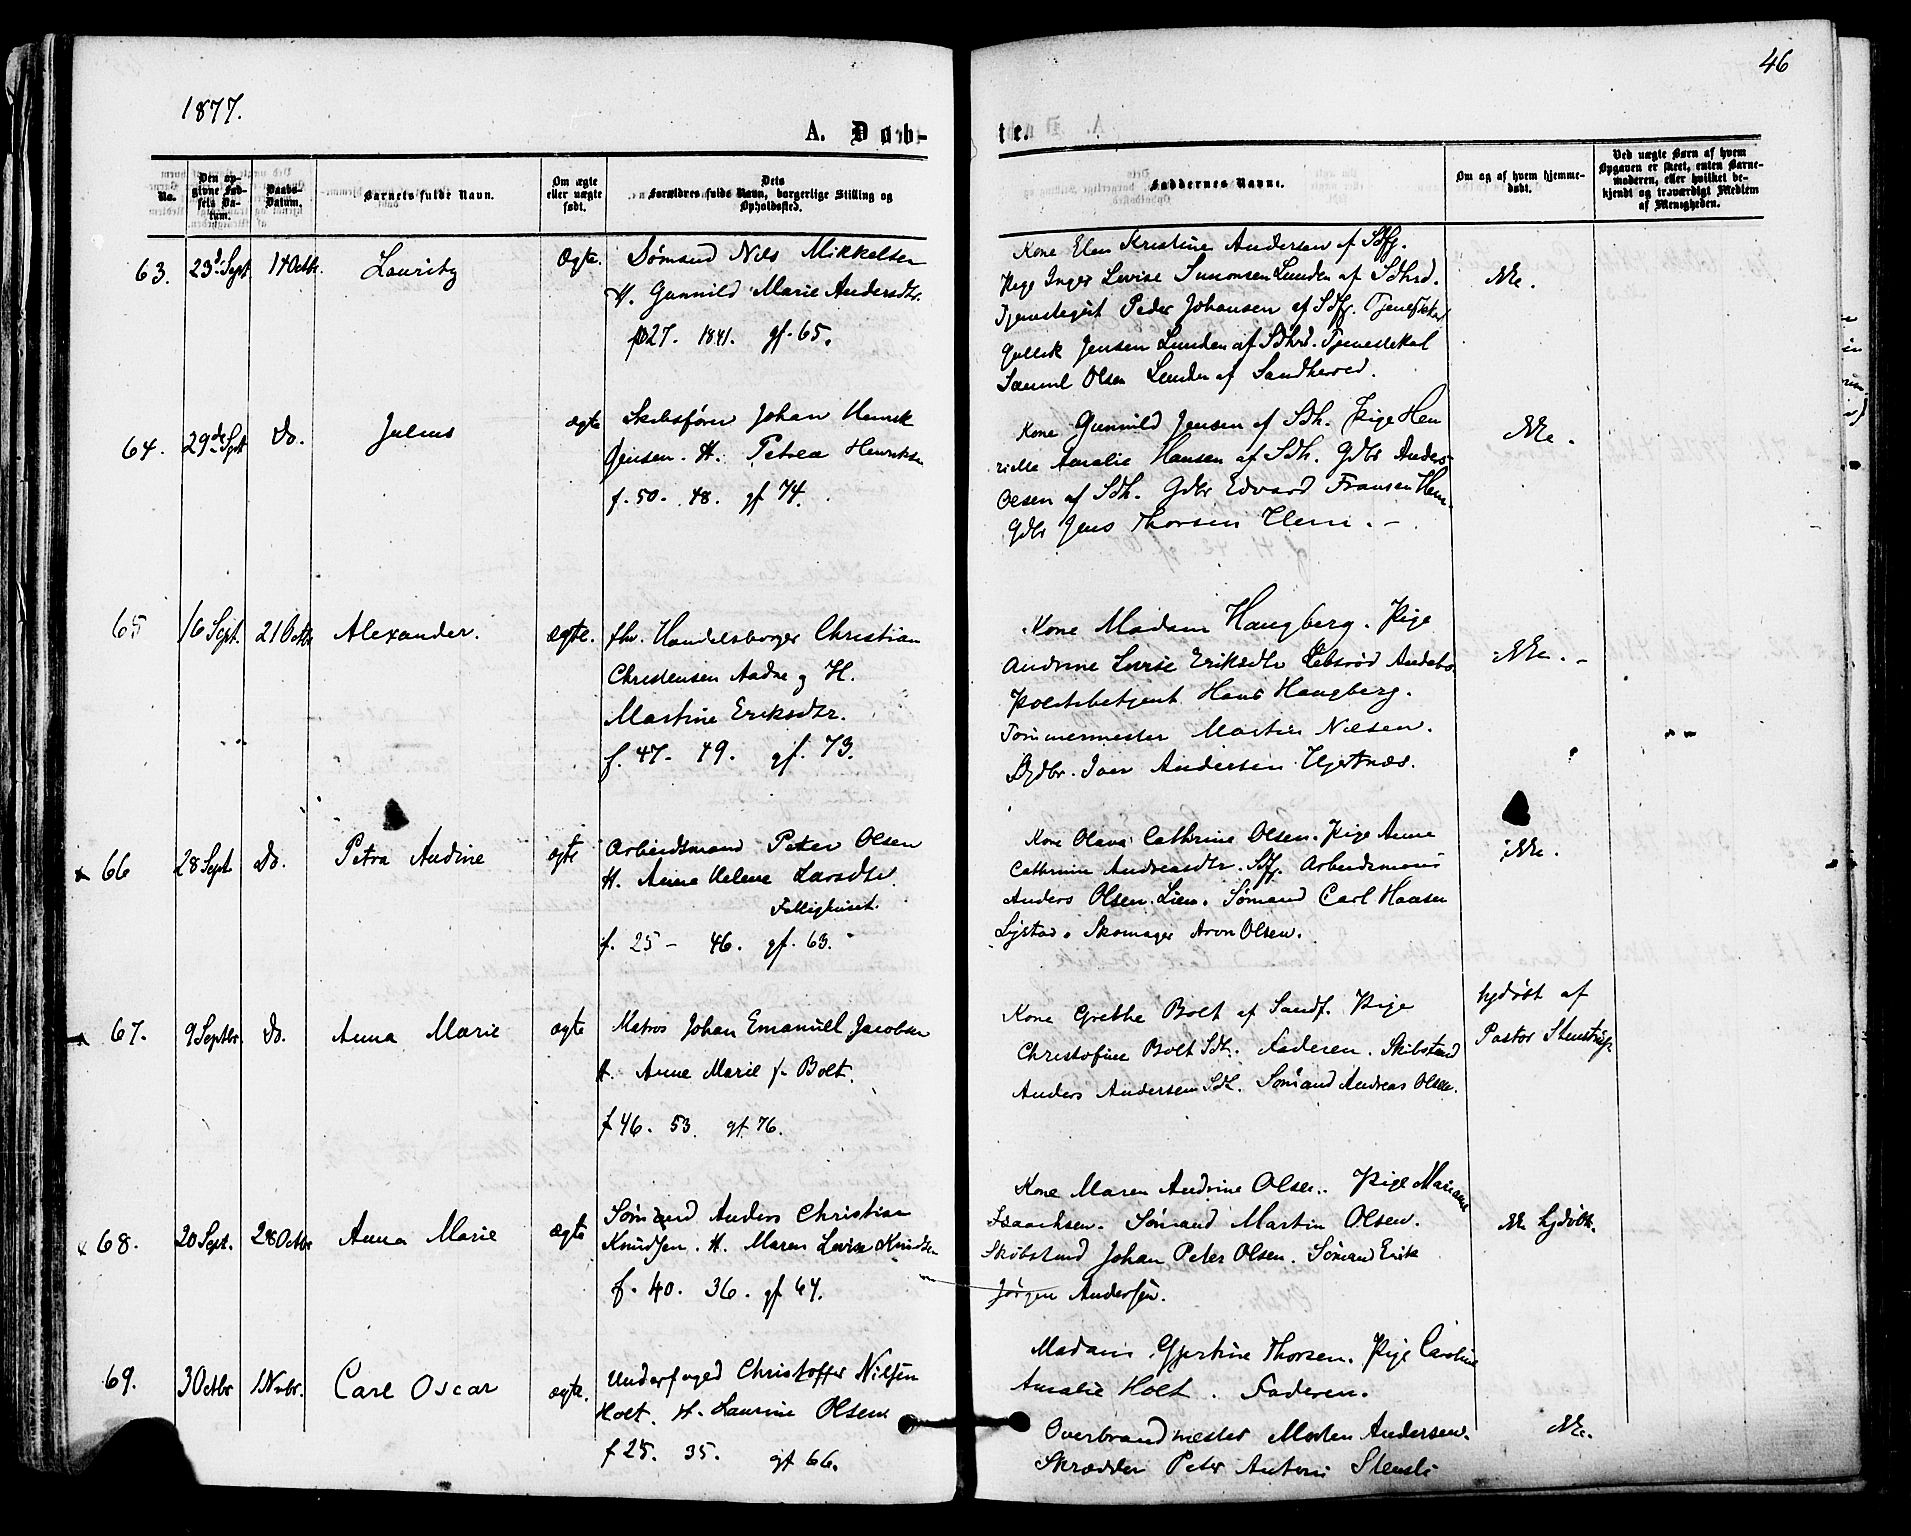 46
1877.
A. Døb-
te.
No.
Den opgivne Fødsels Datum.
Daabs-Datum.
Barnets fulde Navn.
Om ægte eller uægte født.
Dets Forældres fulde Navn, borgerlige Stilling og Opholdssted.
Faddernes Navne.
Om og af hvem hjemmedøbt.
Ved uægte Børn af hvem Opgaven er skeet, enten Barnemoderen, eller hvilket bekjendt og troværdigt Medlem af Menigheden.
63. 23d Sept 14 Octbr. Lauritz Ægte. Sømand Nils Mikkelsen
H. Gunnild Marie Andersdtr.
27. 1841. gf. 65.
Kone Elen Kristine Andersen af Sdfj.
Pige Inger Lovise Simonsen Lunden af Sdhrd.
Tjenestegut Peder Johansen af Sdfj. Tjenestekarl
Gullik Jensen Lunden af Sdhrd. Tjenestekal
Samuel Olsen Lunden af Sandherred.
Nei.
64. 29de Sept Do. Julius ægte Skibsfører Johan Henrik
Jensen. H. Petrea Henriksen
f. 50. 48. gf 74.
Kone Gunnild Jensen af Sdh. Pige Hen
riette Amalie Hansen af Sdh. Gdbr Anders
Olsen af Sdh. Gdbr Edvard Fransen Hem.
Gdbr Jens Thorsen Hem. -
Nei.
65 16 Sept. 21 Octbr Alexander. ægte. fhv. Handelsborger Christian
Christensen Aadne og H.
Martine Eriksdtr.
f. 47. 49. gf. 73.
Kone Madam Haugberg. Pige
Andrine Lovise Eriksdtr Andebo
Politibetjent Hans Haugberg.
Tømmermester Martin Nilsen.
Gdbr. Iver Andersen Hjertnæs.
Nei. -
66 28 Sept. Do. Petra Andine ægte Arbeidsmand Peter Olsen
H. Anne Helene Larsdtr.
Fattighuset.
f. 25 - 46. gf. 63.
Kone Olava Cathrine Olsen. Pige Anne
Cathrine Andreasdtr. Sdfj. Arbeidsmand
Anders Olsen Lien. Sømand Carl Hansen
Lystad. Skomager Aron Olsen.
Nei.
67. 9 Septbr. Do. Anna Marie ægte Matros Johan Emanuel Jacobsen
H. Anne Marie f. Bolt.
f 46. 53. gf 76.
Kone Grethe Bolt af Sandf. Pige
Christofine Bolt Sdh. Faderen. Skibstmd
Anders Andersen Sdh. Sømand Andreas Olsen.
hjdøbt af
Pastor Stenstrup
68. 20 Sept. 28 Octbr Anna Marie ægte Sømand Anders Christian
Knudsen. H. Maren Lovise Knudsen
f. 40. 36. gf 64.
Kone Maren Andrine Olsen. Pige Mariane
Isaachsen. Sømand Martin Olsen.
Skibstmd Johan Peter Olsen. Sømand Erik
Jørgen Andersen.
ei hjdøbt.
69. 3 Octbr 1 Novbr. Carl Oscar ægte. Underfoged Christoffer Nilsen
Holt. H. Laurine Olsen
f 25. 35. gf 66.
Madam Gjertine Thorsen. Pige Caroline
Amalie Holt. Faderen.
Overbrandmester Morten Andersen.
Skrædder Peter Anton Stensli
Nei.